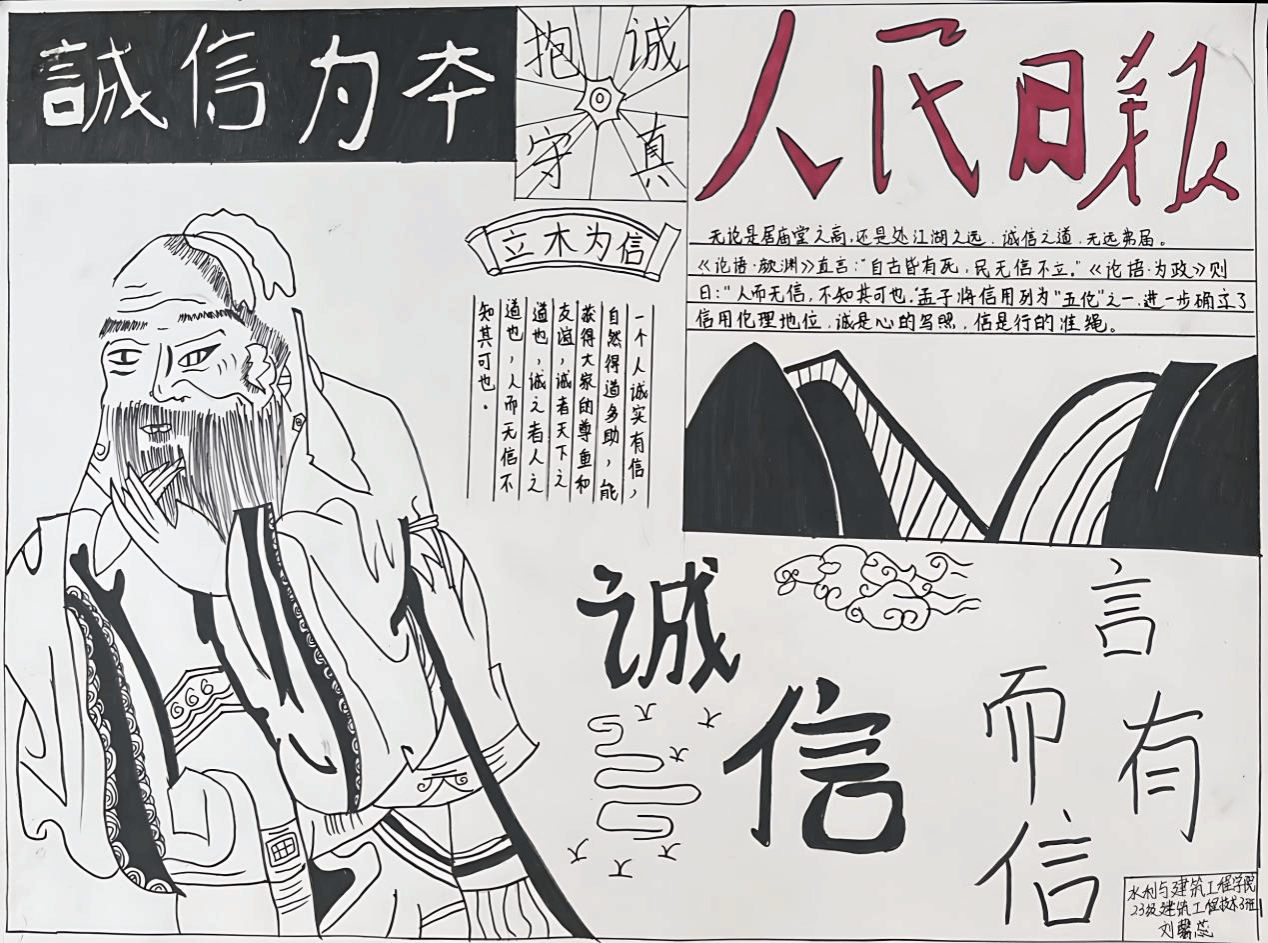 誠信为本
抱诚
守真
人民日报
无论是居庙堂之高,还是处江湖之远,诚信之道,无远弗届。
《论语·颜渊》直言:"自古皆有死,民无信不立。"《论语·为政》则
曰:"人而无信,不知其可也。"孟子将信用列为"五伦"之一,进一步确立了
信用伦理地位,诚是心的写照,信是行的准绳。
立木为信
一个人诚实有信,
自然得道多助,能
获得大家的尊鱼和
友谊,诚者天下之
道也,诚之者人之
道也,人而无信不
知其可也。
诚
信
言
有
而
信
水利与建筑工程学院
23级建筑工程技术3班
刘馨蕊